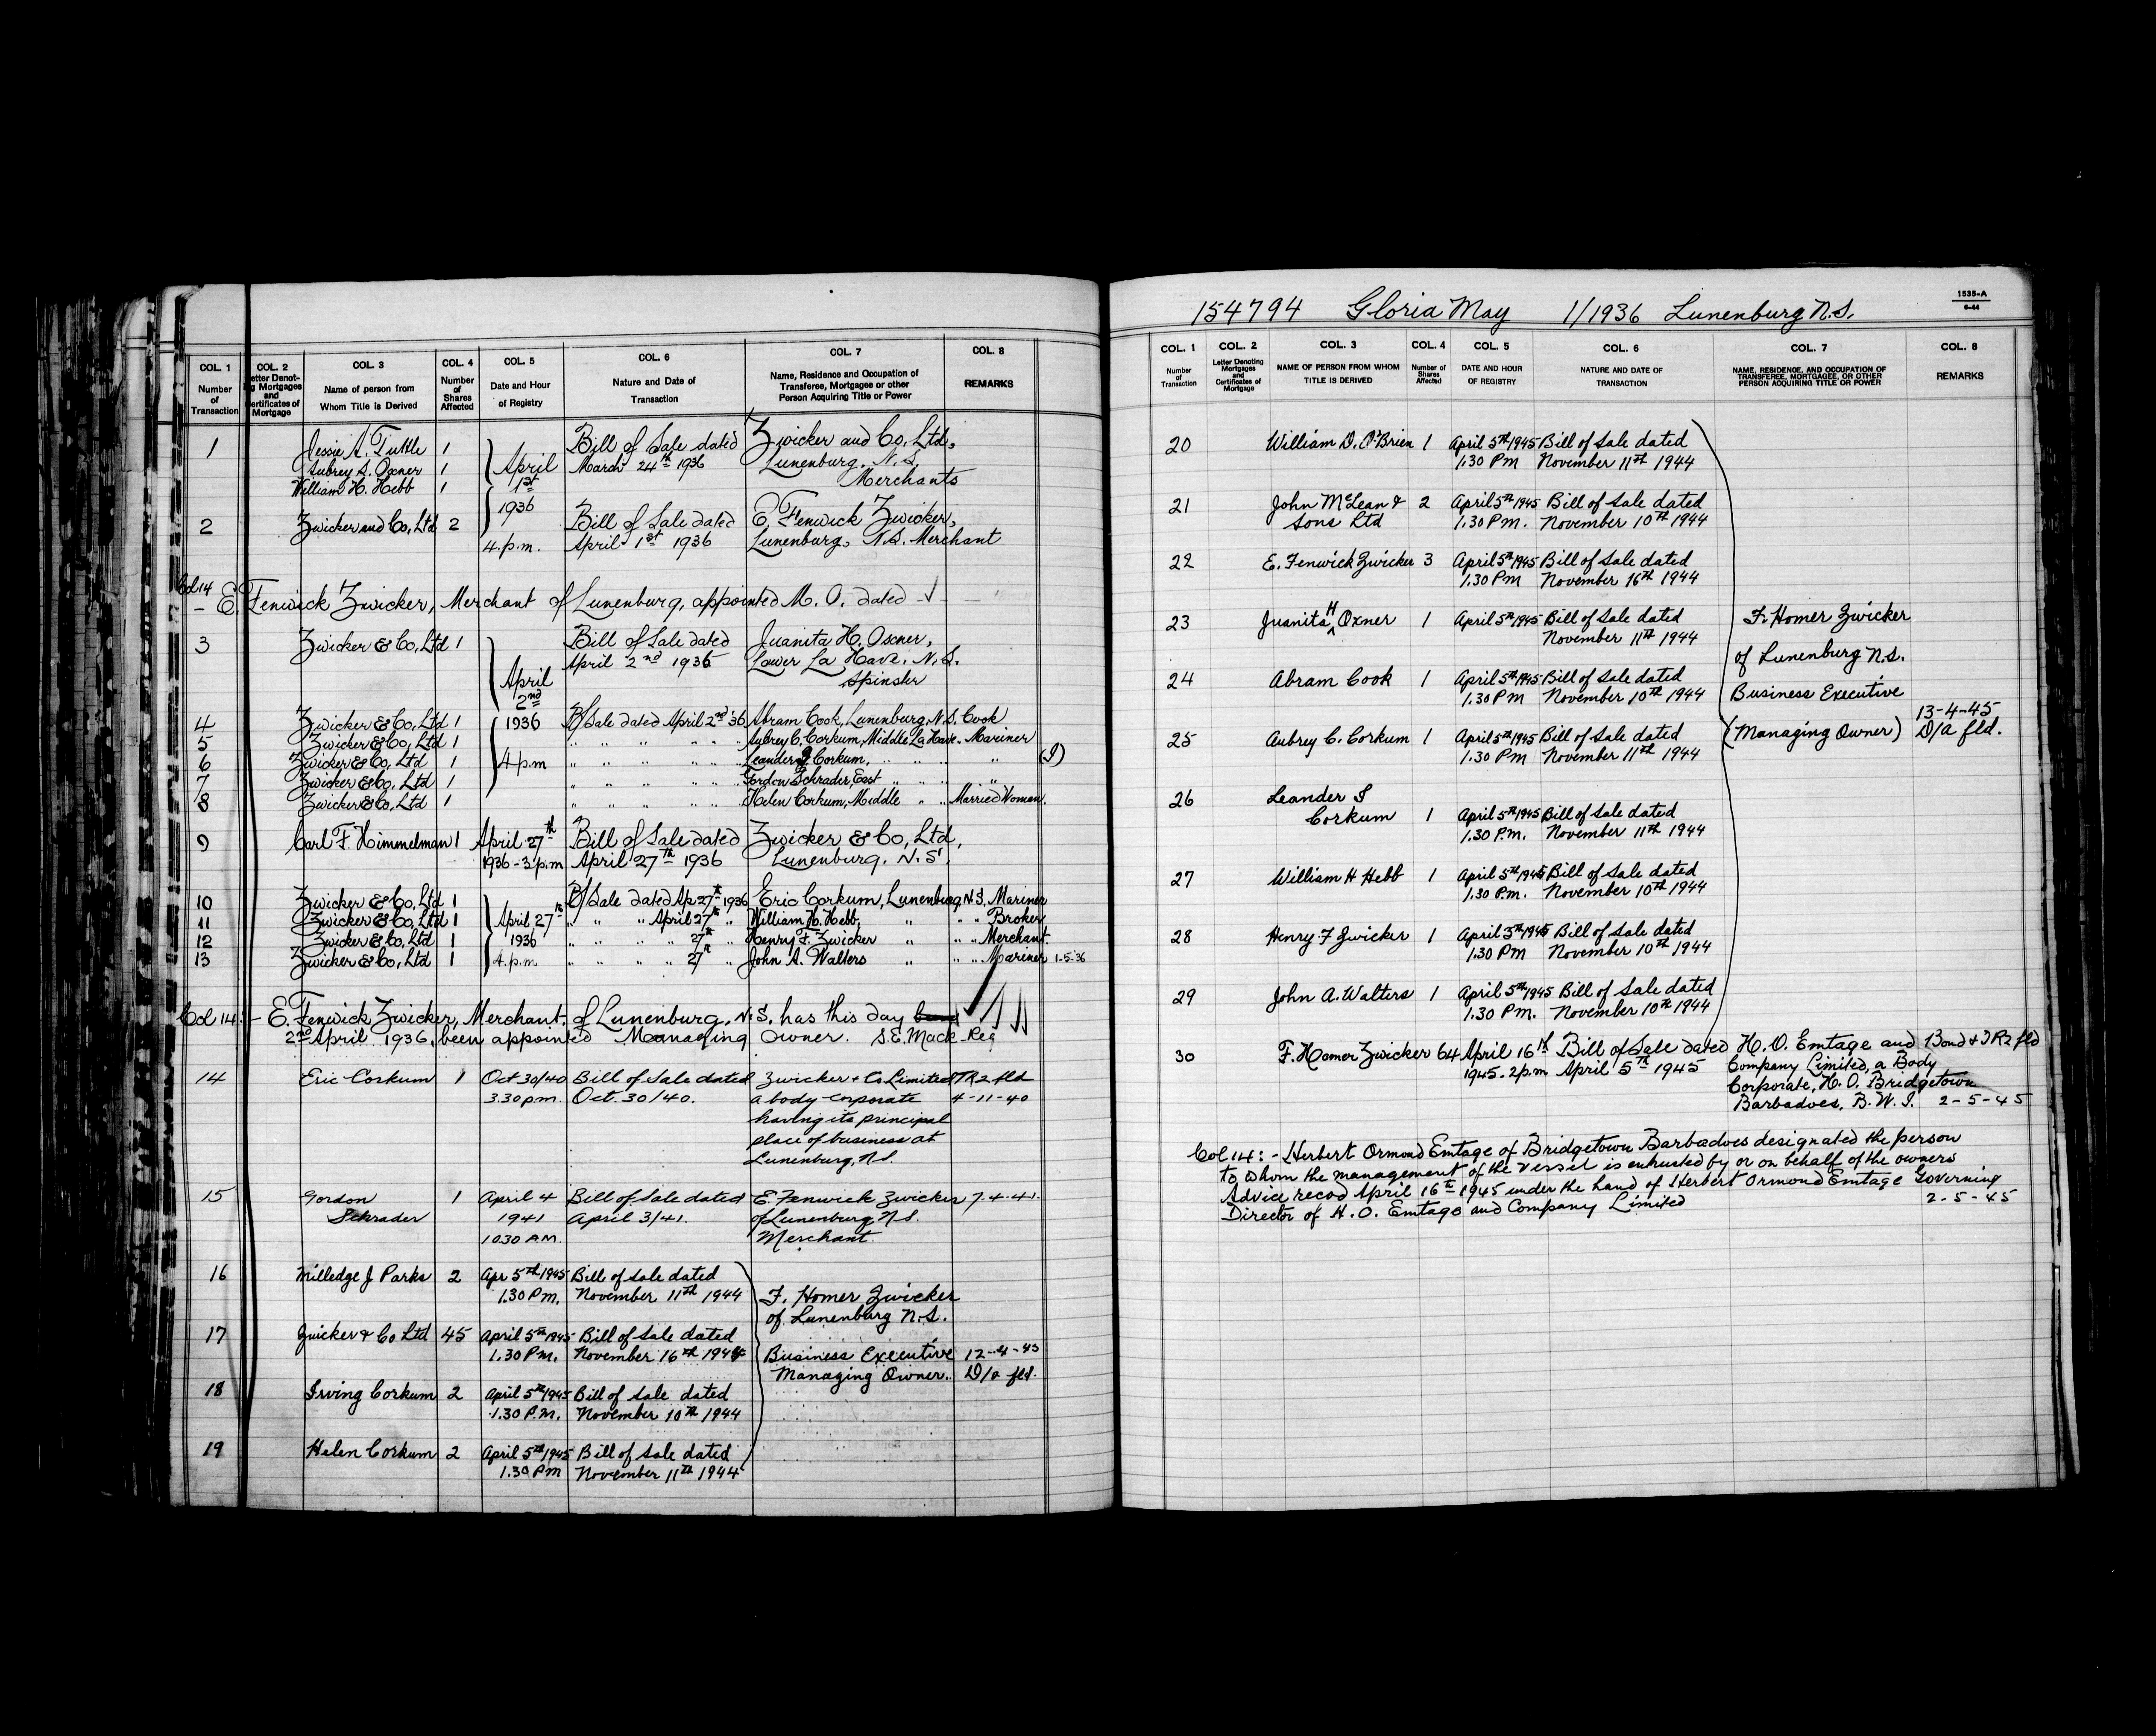 COL. 1 COL. 2 COL. 3 COL. 4 COL. 5 COL. 6 COL. 7 COL. 8
Number of Transaction
Letter Denoting Mortgages and Certificates of Mortgage
Name of person from Whom Title is Derived
Number of Shares Affected
Date and Hour of Registry
Nature and Date of Transaction
Name, Residence and Occupation of Transferee, Mortgagee or other Person Acquiring Title or Power
REMARKS
1 Jessie A. Tuttle 1 Bill of Sale dated Zwicker and Co, Ltd,
Aubrey S. Oxner 1 April March 24th 1936 Lunenburg. N.S.
William H. Hebb 1 1st Merchants
1936
2 Zwicker and Co, Ltd 2 Bill of Sale dated E. Fenwick Zwicker,
4.p.m. April 1st 1936 Lunenburg, N.S. Merchant
Col 14
- E. Fenwick Zwicker, Merchant of Lunenburg, appointed M. O. dated
3 Zwicker & Co, Ltd 1 Bill of Sale dated Juanita H. Oxner,
April 2nd 1936 Lower La Have. N.S.
April Spinster
2nd
4 Zwicker & Co, Ltd 1 1936 B/Sale dated April 2nd '36 Abram Cook, Lunenburg, N.S. Cook
5 Zwicker & Co, Ltd 1 " " " " " " Aubrey C. Corkum, Middle La Have. Mariner
6 Zwicker & Co, Ltd 1 4 p.m " " " " " " Leander J. Corkum, " " " " (J)
7 Zwicker & Co, Ltd 1 " " " " " " Gordon Schrader, East " " "
8 Zwicker & Co, Ltd 1 " " " " " " Helen Corkum, Middle " " Married Woman.
9 Carl F. Himmelman 1 April 27th Bill of Sale dated Zwicker & Co, Ltd,
1936 - 3.p.m April 27th 1936 Lunenburg. N.S.
10 Zwicker & Co, Ltd 1 B/Sale dated Ap. 27th 1936 Eric Corkum, Lunenburg N.S. Mariner
11 Zwicker & Co, Ltd 1 April 27th " " " April 27th " William H. Hebb, " " " Broker
12 Zwicker & Co, Ltd 1 1936 " " " " 27th " Henry F. Zwicker " " " Merchant.
13 Zwicker & Co, Ltd 1 4.p.m " " " " 27th " John A. Walters " " " Mariner 1-5-36
Col 14: - E. Fenwick Zwicker, Merchant, of Lunenburg, N.S. has this day
2nd April 1936, been appointed Managing Owner. S.E. Mack Reg
14 Eric Corkum 1 Oct 30/40 Bill of Sale dated Zwicker & Co Limited TR2 fld
3.30 pm. Oct. 30/40. a body corporate 4-11-40
having its principal
place of business at
Lunenburg, N.S.
15 Gordon 1 April 4 Bill of Sale dated E. Fenwick Zwicker 7.4.41.
Schrader 1941 April 3/41. of Lunenburg N.S.
10.30 A.M. Merchant.
16 Milledge J Parks 2 Apr 5th 1945 Bill of Sale dated
1.30 P.M. November 11th 1944 F. Homer Zwicker
of Lunenburg N.S.
17 Zwicker & Co Ltd 45 April 5th 1945 Bill of Sale dated
1.30 P.M. November 16th 1944 Business Executive 12-4-45
Managing Owner. D/a fld.
18 Irving Corkum 2 April 5th 1945 Bill of Sale dated
1.30 P.M. November 10th 1944
19 Helen Corkum 2 April 5th 1945 Bill of Sale dated
1.30 PM November 11th 1944
1535-A
6-44
154794 Gloria May 1/1936 Lunenburg N.S.
COL. 1 COL. 2 COL. 3 COL. 4 COL. 5 COL. 6 COL. 7 COL. 8
Number of Transaction
Letter Denoting Mortgages and Certificates of Mortgage
NAME OF PERSON FROM WHOM TITLE IS DERIVED
Number of Shares Affected
DATE AND HOUR OF REGISTRY
NATURE AND DATE OF TRANSACTION
NAME, RESIDENCE, AND OCCUPATION OF TRANSFEREE, MORTGAGEE, OR OTHER PERSON ACQUIRING TITLE OR POWER
REMARKS
20 William D. O'Brien 1 April 5th 1945 Bill of Sale dated
1.30 PM November 11th 1944
21 John McLean & 2 April 5th 1945 Bill of Sale dated
Sons Ltd 1.30 P.M. November 10th 1944
22 E. Fenwick Zwicker 3 April 5th 1945 Bill of Sale dated
1.30 PM November 16th 1944
23 Juanita H Oxner 1 April 5th 1945 Bill of Sale dated F. Homer Zwicker
November 11th 1944
of Lunenburg N.S.
24 Abram Cook 1 April 5th 1945 Bill of Sale dated
1.30 PM November 10th 1944 Business Executive
13-4-45
25 Aubrey C. Corkum 1 April 5th 1945 Bill of Sale dated (Managing Owner) D/a fld.
1.30 PM November 11th 1944
26 Leander J
Corkum 1 April 5th 1945 Bill of Sale dated
1.30 P.M. November 11th 1944
27 William H Hebb 1 April 5th 1945 Bill of Sale dated
1.30 P.M. November 10th 1944
28 Henry F Zwicker 1 April 5th 1945 Bill of Sale dated
1.30 PM November 10th 1944
29 John A. Walters 1 April 5th 1945 Bill of Sale dated
1.30 PM. November 10th 1944
30 F. Homer Zwicker 64 April 16th Bill of Sale dated H. O. Emtage and Bond & TR2 fld
1945. 2 p.m April 5th 1945 Company Limited, a Body
Corporate, H. O. Bridgetown
Barbadoes, B.W.I. 2-5-45
Col 14: - Herbert Ormond Emtage of Bridgetown Barbadoes designated the person
to whom the management of the vessel is entrusted by or on behalf of the owners
Advice recod April 16th 1945 under the hand of Herbert Ormond Emtage Governing
Director of H. O. Emtage and Company Limited 2-5-45